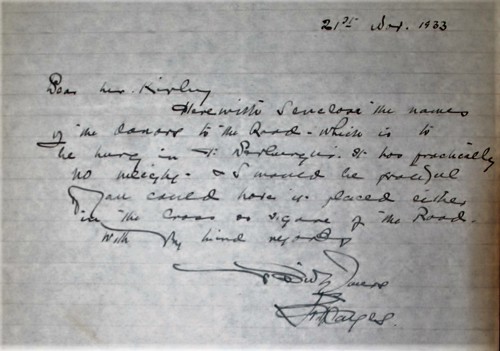 21st Nov. 1933
Dear Mr. Kirby
Herewith I enclose the names
of the donors to the Rood - which is to
be hung in St. Werburgh's. It has practically
no weight - & I would be grateful
you could have it placed either
in the Cross or figure of the Rood.
With my kind regards
Yours